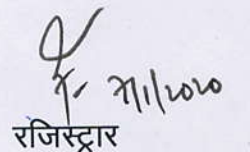 7/1/2020
रजिस्ट्रार